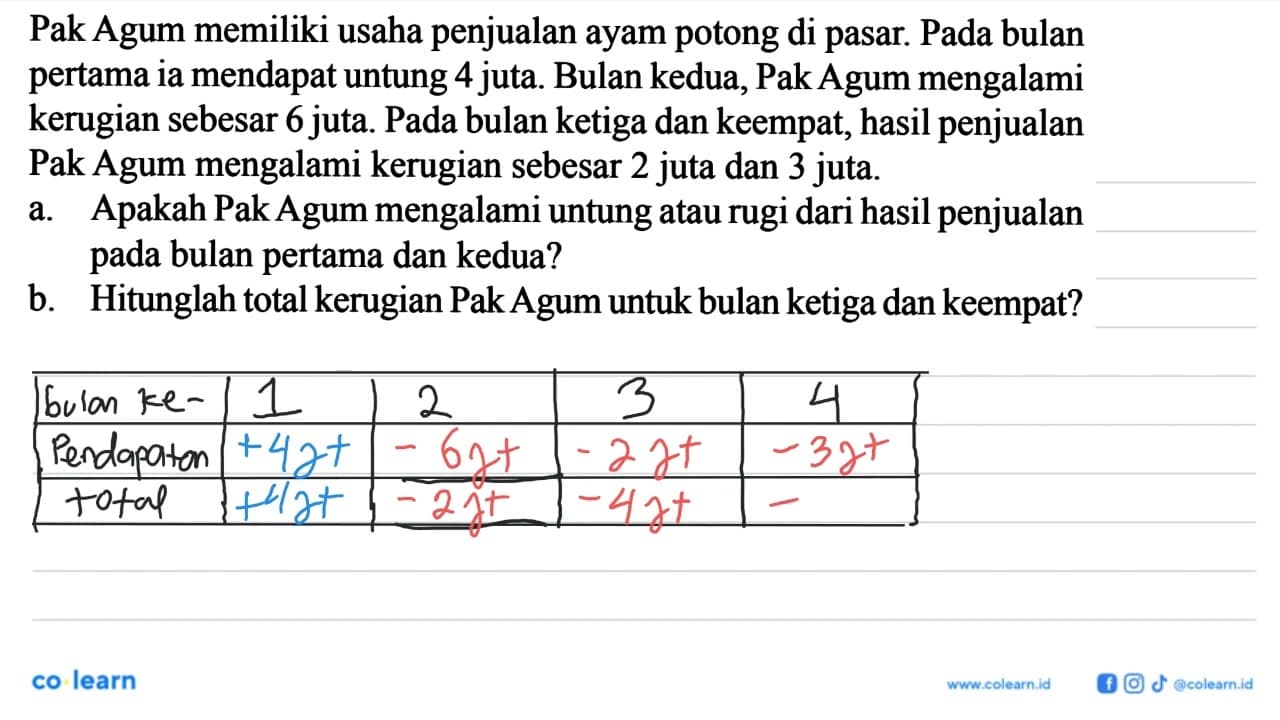 Pak Agum memiliki usaha penjualan ayam potong di pasar. Pada bulan
pertama ia mendapat untung 4 juta. Bulan kedua, Pak Agum mengalami
kerugian sebesar 6 juta. Pada bulan ketiga dan keempat, hasil penjualan
Pak Agum mengalami kerugian sebesar 2 juta dan 3 juta.
a. Apakah Pak Agum mengalami untung atau rugi dari hasil penjualan
pada bulan pertama dan kedua?
b. Hitunglah total kerugian Pak Agum untuk bulan ketiga dan keempat?
bulan ke- 1 2 3 4
Pendapatan +4jt -6jt -2jt -3jt
total +4jt -2jt -4jt -
co learn
www.colearn.id @colearn.id